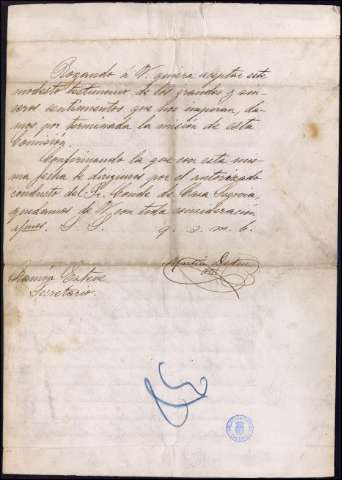 Rogando á V. quiera aceptar este
modesto testimonio de los grandes y sin-
ceros sentimientos que nos inspiran, da-
mos por terminada la misión de esta
Comisión.
Confirmando la que con esta mis-
ma fecha le dirigimos por el autorizado
conducto del Sr. Conde de Casa Segovia,
quedamos de V. con toda consideración
afmos. S. S. q. b. s. m.
Ramon Esteve
Secretario.